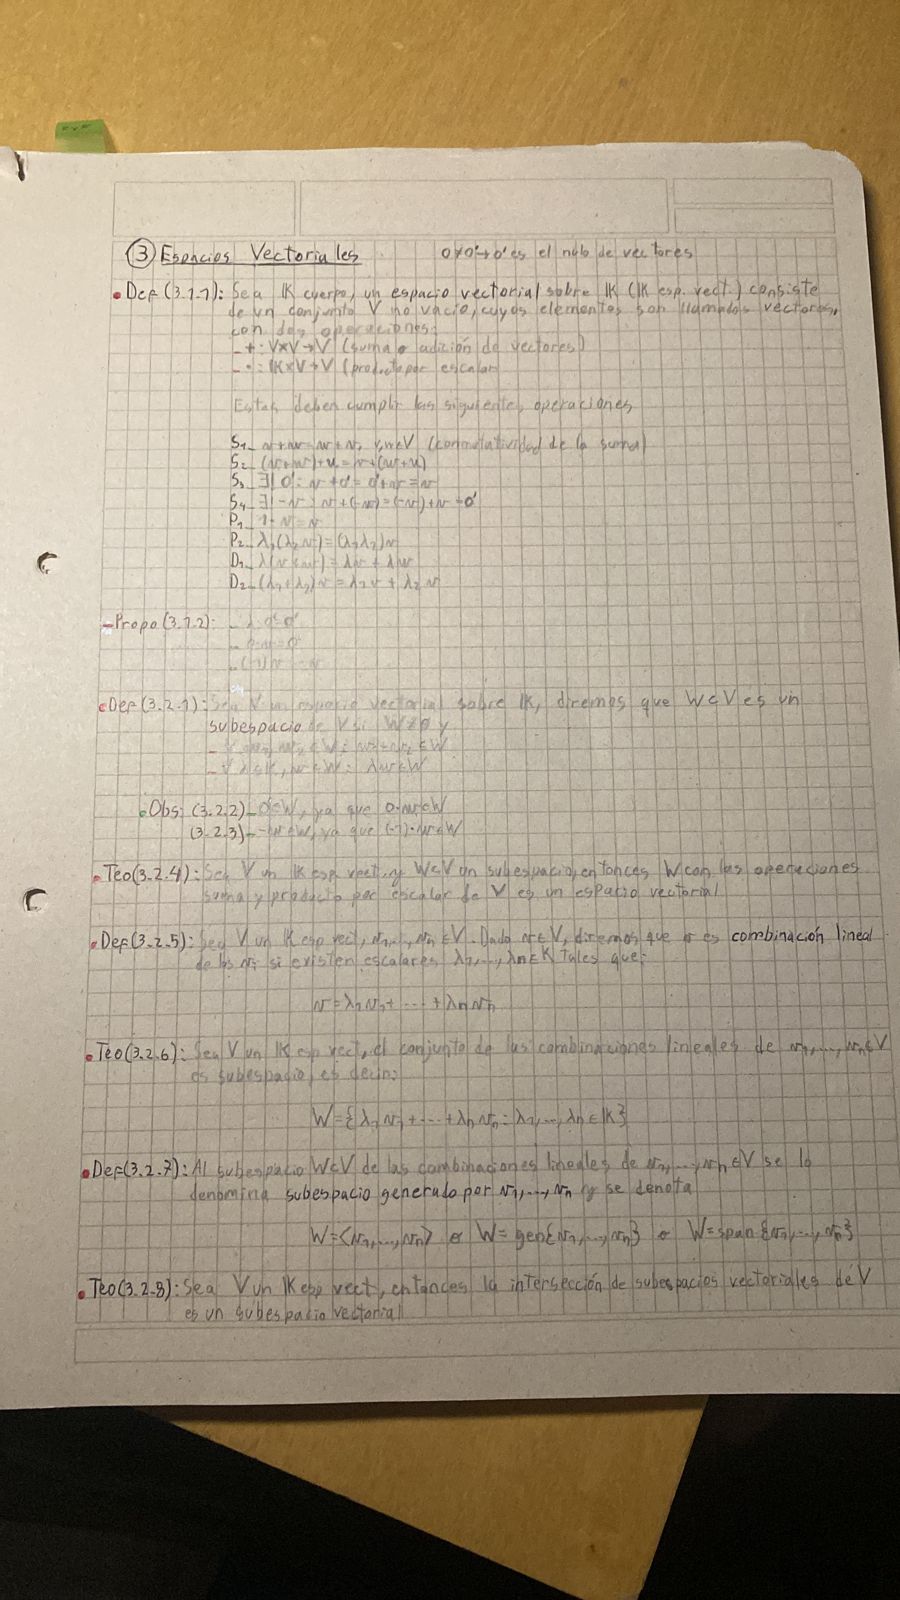 ③ Espacios Vectoriales 0≠0'→0' es el nulo de vectores
• Def (3.1.1): Sea IK cuerpo, un espacio vectorial sobre IK (IK esp. vect.) consiste
de un conjunto V no vacío, cuyos elementos son llamados vectores,
con dos operaciones:
- +: V×V→V (suma o adición de vectores)
- ·: IK×V→V (producto por escalar
Estas deben cumplir las siguientes operaciones
S₁_ v+w=w+v, v,w∈V (conmutatividad de la suma)
S₂_ (v+w)+u=v+(w+u)
S₃_ ∃| 0': v+0'=0'+v=v
S₄_ ∃| -v: v+(-v)=(-v)+v=0'
P₁_ 1·v=v
P₂_ λ₁(λ₂v)=(λ₁λ₂)v
D₁_ λ(v+w)=λv+λw
D₂_ (λ₁+λ₂)v=λ₁v+λ₂v
- Propo (3.1.2): - λ·0'=0'
- 0·v=0'
- (-1)v=-v
• Def (3.2.1): Sea V un espacio vectorial sobre IK, diremos que W⊂V es un
subespacio de V si W≠ø y
- ∀ w₁,w₂∈W: w₁+w₂∈W
- ∀ λ∈K, w∈W: λw∈W
• Obs: (3.2.2)- 0'∈W, ya que 0·w∈W
(3.2.3)- -w∈W, ya que (-1)·w∈W
• Teo (3.2.4): Sea V un IK esp. vect. y W⊂V un subespacio, entonces W con las operaciones
suma y producto por escalar de V es un espacio vectorial
• Def (3.2.5): Sea V un IK esp vect, v₁,...,vₙ∈V. Dado v∈V, diremos que v es combinación lineal
de los vᵢ si existen escalares λ₁,...,λₙ∈K tales que:
v=λ₁v₁+...+λₙvₙ
• Teo (3.2.6): Sea V un IK esp vect, el conjunto de las combinaciones lineales de v₁,...,vₙ∈V
es subespacio, es decir:
W={λ₁v₁+...+λₙvₙ: λ₁,...,λₙ∈IK}
• Def (3.2.7): Al subespacio W⊂V de las combinaciones lineales de v₁,...,vₙ∈V se lo
denomina subespacio generado por v₁,...,vₙ y se denota
W=<v₁,...,vₙ> o W=gen{v₁,...,vₙ} o W=span{v₁,...,vₙ}
• Teo (3.2.8): Sea V un IK esp vect, entonces la intersección de subespacios vectoriales de V
es un subespacio vectorial